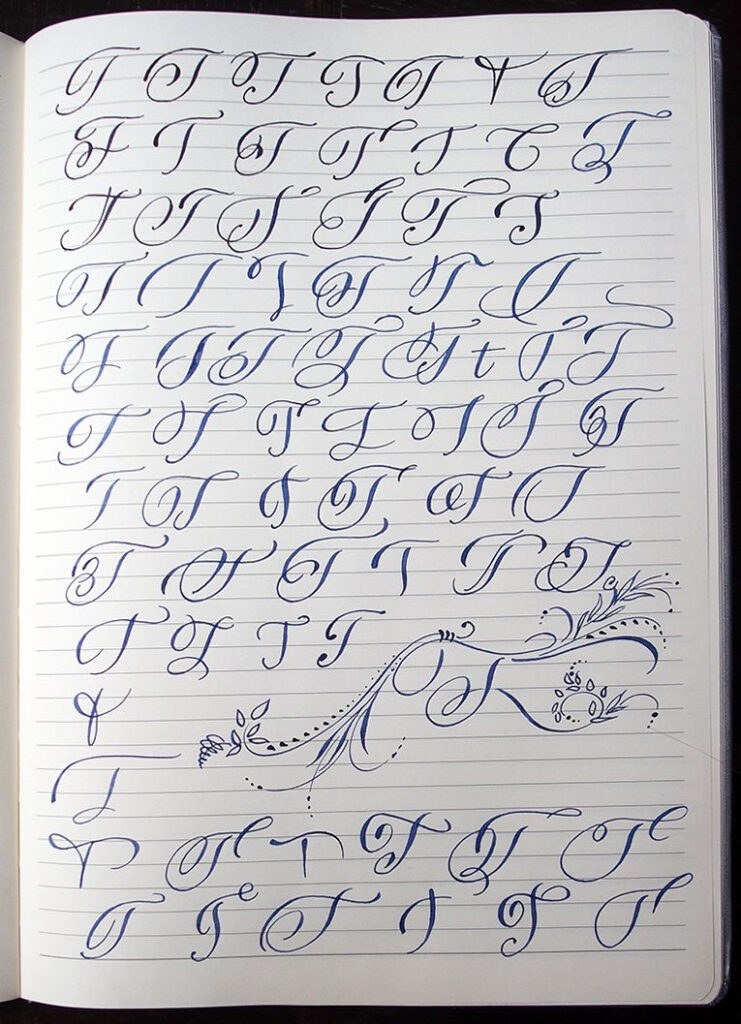 T T T T T T T
T T T T T T T
T T T T T T
T T T T T T
T T T T T t T T
T T T T T T T
T T T T T T
T T T T T T
T T T T
T T
T
T T T T T T
T T T T T T